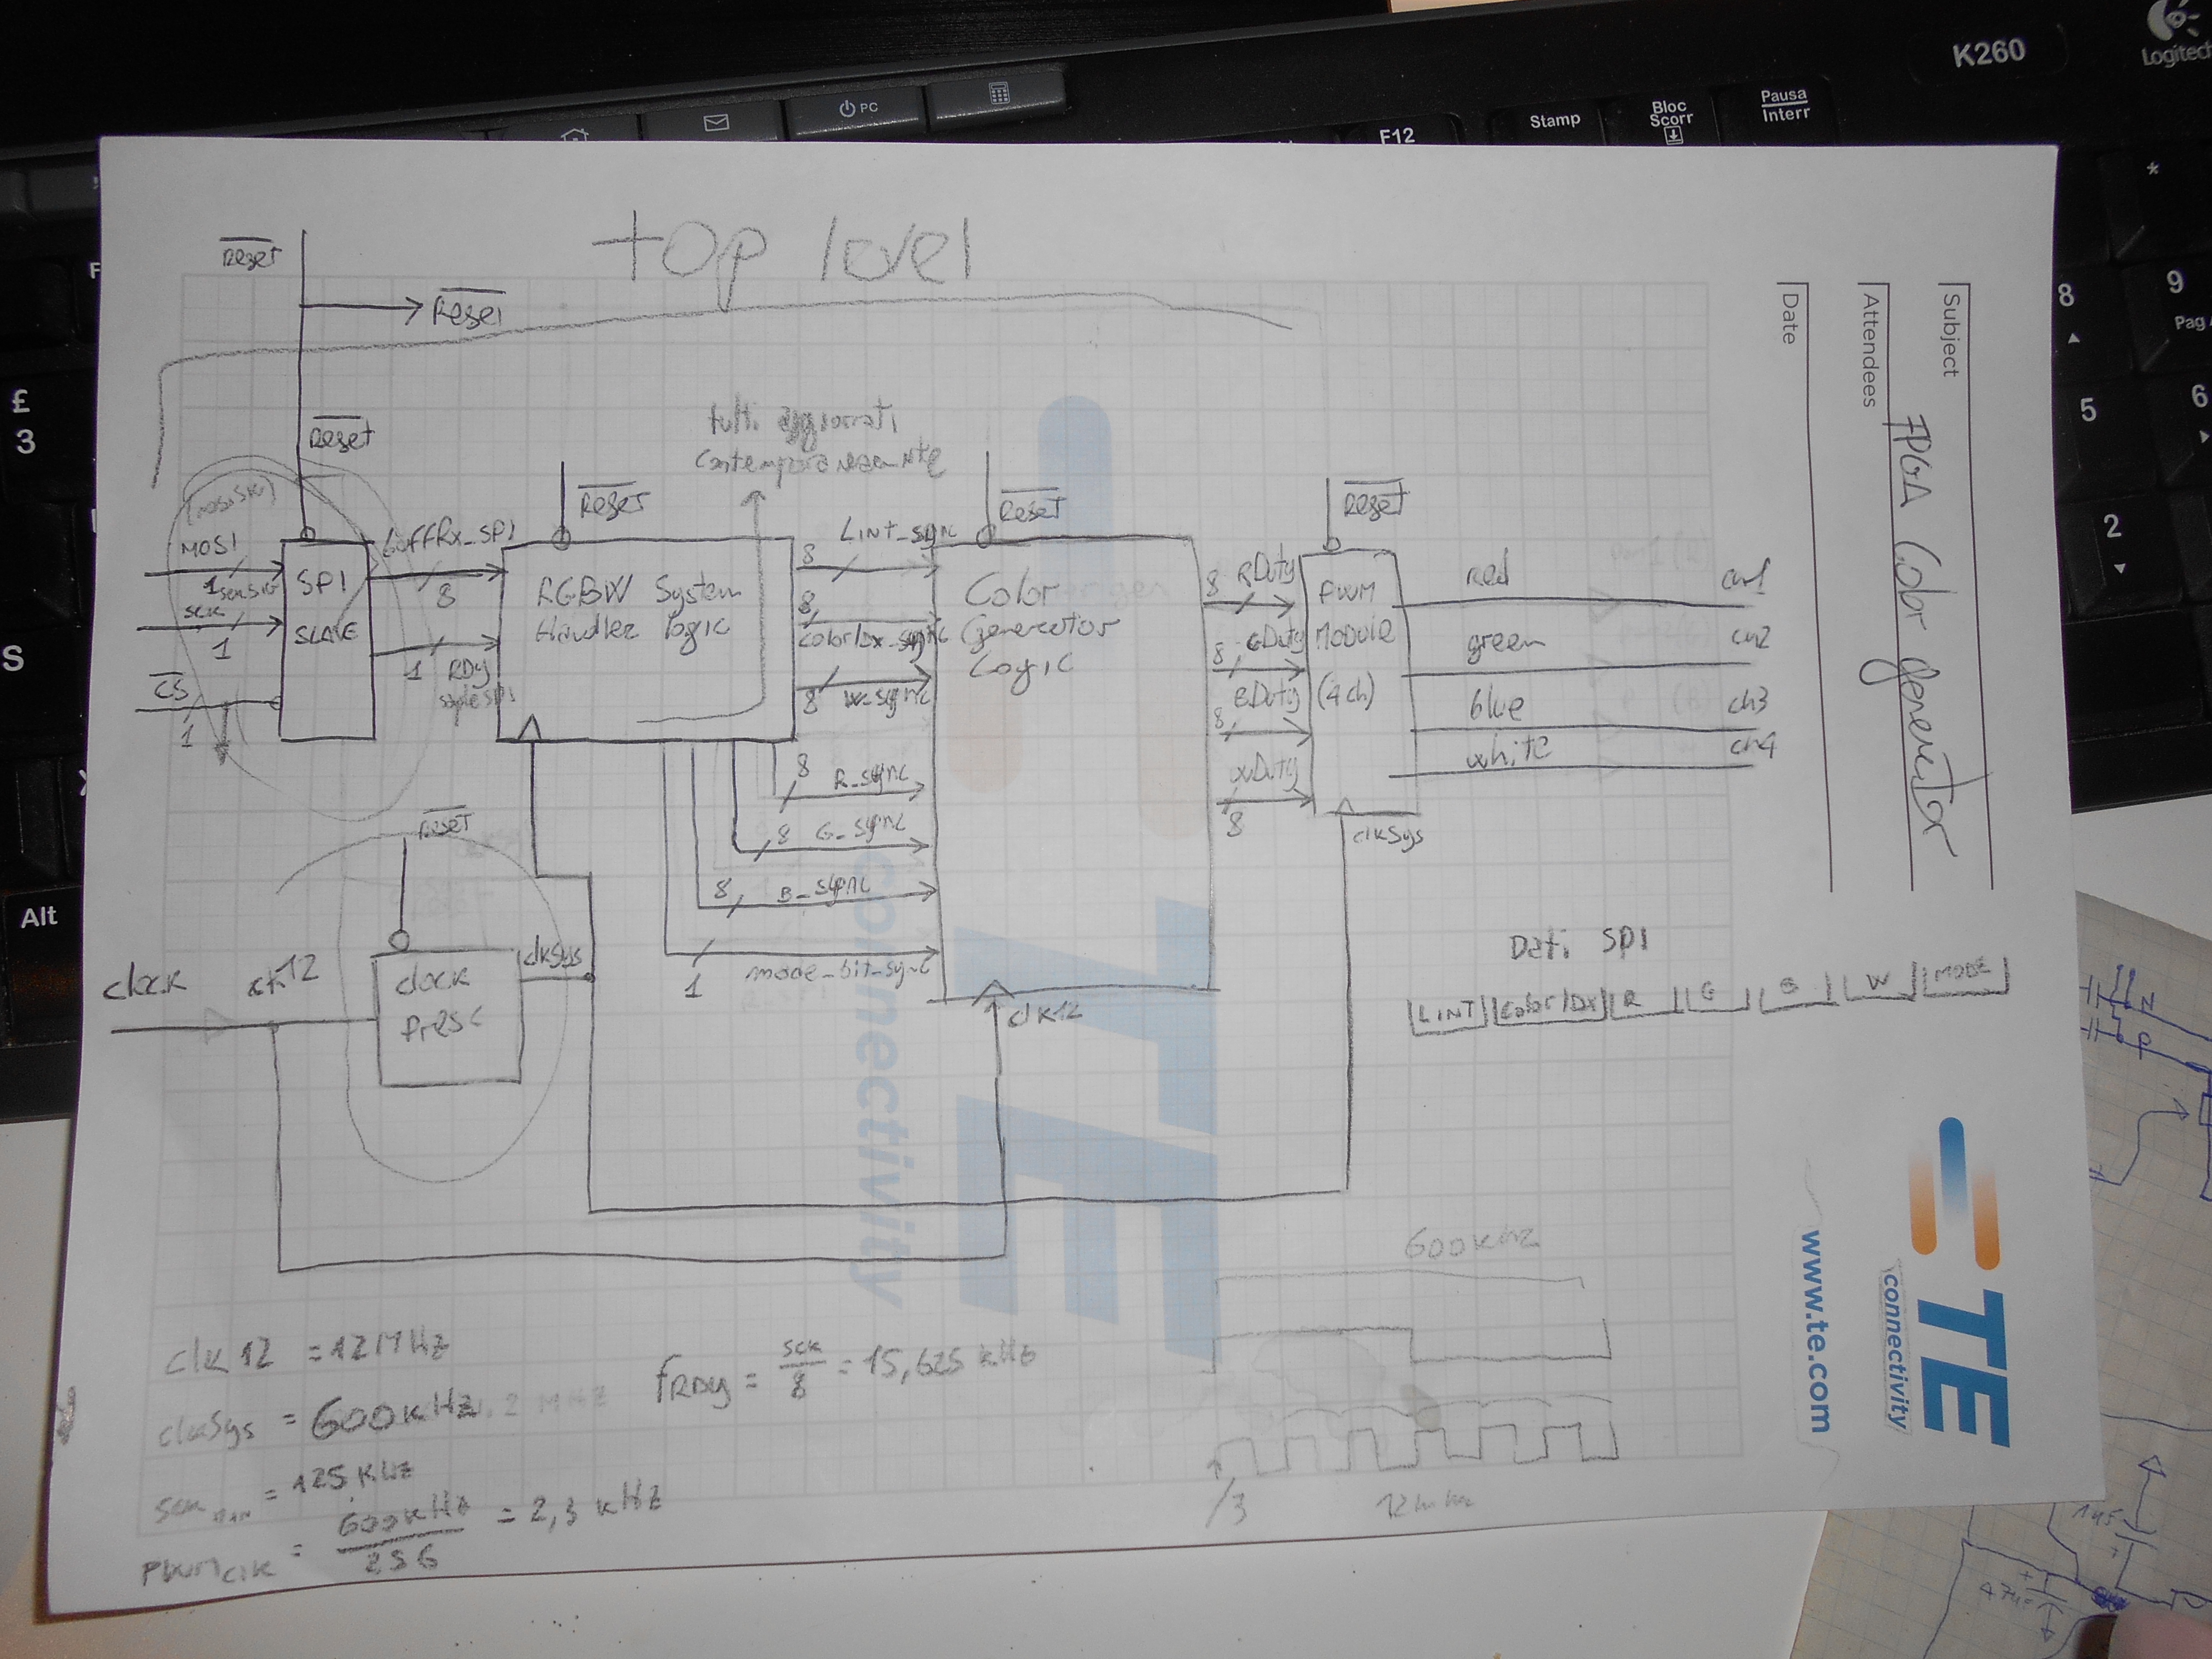 K260
Logitech
PC
F12
Stamp
Bloc
Scorr
Pausa
Interr
£
3
S
Alt
8
9
Pag
5
6
2
*
top level
Reset
Reset
Reset
Reset
Reset
Reset
Reset
tutti aggiornati
contemporaneamente
MOSI
1
sck
1
CS
1
SPI
SLAVE
buffRx_SPI
8
1
RDy
RGBW System
Handler logic
8
Lint_sync
8
colorIdx_sync
8
W_sync
8
R_sync
8
G_sync
8
B_sync
1
mode_bit_sync
Color
Generator
Logic
clk12
8
RDuty
8
GDuty
8
BDuty
wDuty
8
PWM
Module
(4ch)
clkSys
red
ch1
green
ch2
blue
ch3
white
ch4
clock
clk12
clock
Presc
clkSys
Dati SPI
LINT
Color IDX
R
G
B
W
MODE
clk12 = 12MHz
clkSys = 600kHz
sck = 125 kHz
PWMclk = 600kHz / 256 = 2,3 kHz
fRDy = sck / 8 = 15,625 kHz
600kHz
/3
Subject
FPGA Color generator
Attendees
Date
TE
connectivity
www.te.com
TE
connectivity